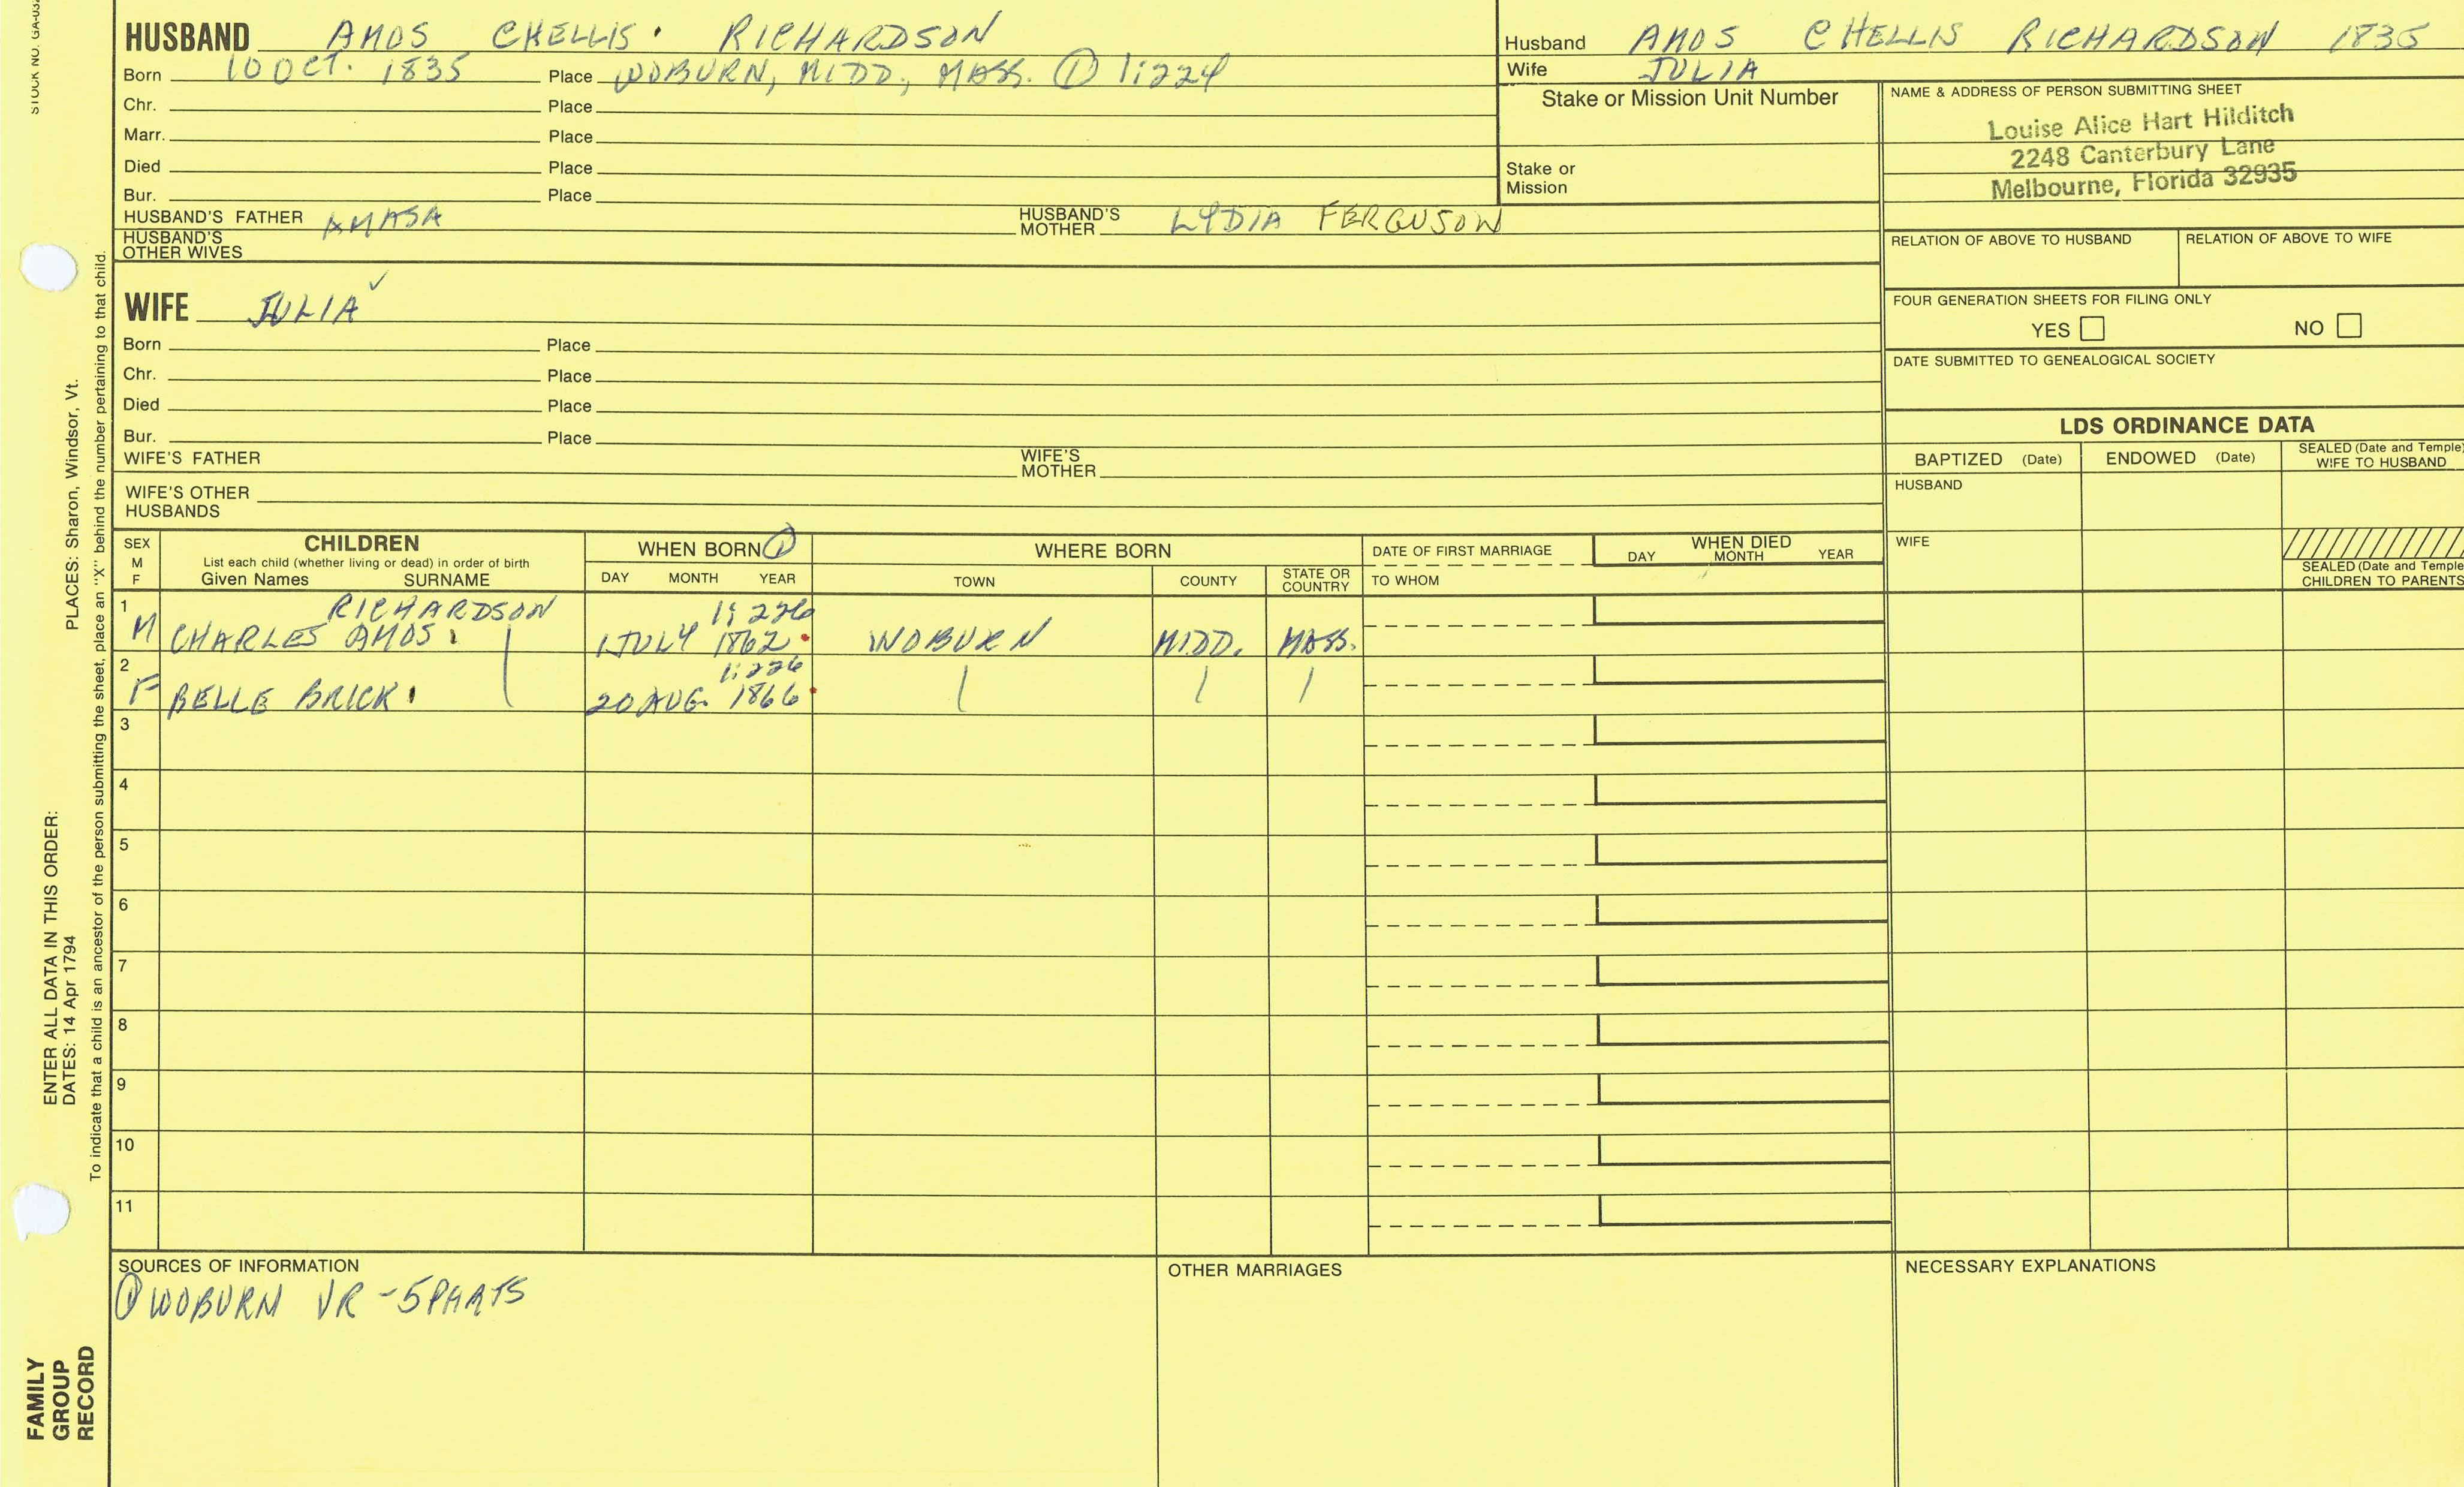 STOCK NO. GA-03
HUSBAND AMOS CHELLIS. RICHARDSON
Born 10 OCT. 1835 Place WOBURN, MIDD., MASS. ① 1:224
Chr. Place
Marr. Place
Died Place
Bur. Place
HUSBAND'S FATHER AMASA HUSBAND'S MOTHER LYDIA FERGUSON
HUSBAND'S OTHER WIVES
Husband AMOS CHELLIS RICHARDSON 1835
Wife JULIA
Stake or Mission Unit Number
Stake or Mission
NAME & ADDRESS OF PERSON SUBMITTING SHEET
Louise Alice Hart Hilditch
2248 Canterbury Lane
Melbourne, Florida 32935
RELATION OF ABOVE TO HUSBAND RELATION OF ABOVE TO WIFE
FOUR GENERATION SHEETS FOR FILING ONLY
YES NO
DATE SUBMITTED TO GENEALOGICAL SOCIETY
WIFE JULIA ✓
Born Place
Chr. Place
Died Place
Bur. Place
WIFE'S FATHER WIFE'S MOTHER
WIFE'S OTHER HUSBANDS
LDS ORDINANCE DATA
BAPTIZED (Date) ENDOWED (Date) SEALED (Date and Temple) WIFE TO HUSBAND
HUSBAND
WIFE
SEALED (Date and Temple
CHILDREN TO PARENTS
SEX M F
CHILDREN
List each child (whether living or dead) in order of birth
Given Names SURNAME
WHEN BORN ①
DAY MONTH YEAR
WHERE BORN
TOWN COUNTY STATE OR COUNTRY
DATE OF FIRST MARRIAGE
TO WHOM
WHEN DIED
DAY MONTH YEAR
1 RICHARDSON 1:226
M CHARLES AMOS. 1 JULY 1862 WOBURN MIDD. MASS.
2 1:226
F BELLE BRICK 20 AUG. 1866
3
4
5
6
7
8
9
10
11
SOURCES OF INFORMATION
① WOBURN VR - 5 PARTS
OTHER MARRIAGES
NECESSARY EXPLANATIONS
PLACES: Sharon, Windsor, Vt.
ENTER ALL DATA IN THIS ORDER:
DATES: 14 Apr 1794
To indicate that a child is an ancestor of the person submitting the sheet, place an "X" behind the number pertaining to that child.
FAMILY
GROUP
RECORD